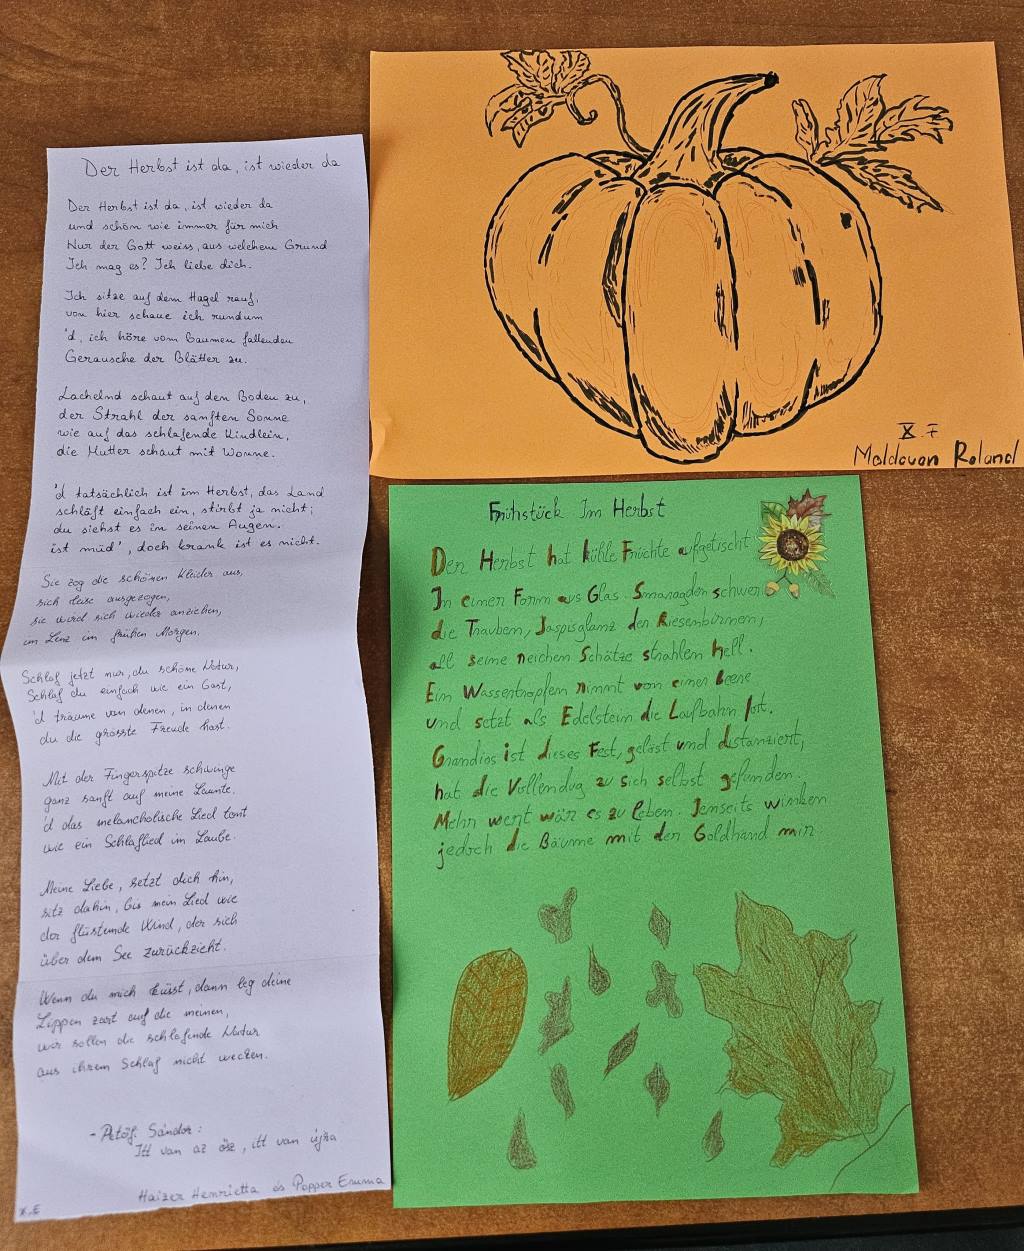 Der Herbst ist da, ist wieder da
Der Herbst ist da, ist wieder da
und schön wie immer für mich
Nur der Gott weiss, aus welchem Grund
Ich mag es? Ich liebe dich.
Ich sitze auf dem Hagel rauf,
von hier schaue ich rundum
'd, ich höre vom Baumen fallenden
Gerausche der Blätter zu.
Lachelnd schaut auf den Boden zu,
der Strahl der sanften Sonne
wie auf das schlafende Kindlein,
die Mutter schaut mit Wonne.
'd tatsächlich ist im Herbst, das Land
schläft einfach ein, stirbt ja nicht;
du siehst es in seinen Augen.
ist müd', doch krank ist es nicht.
Sie zog die schönen Kleider aus,
sich leise ausgezogen,
sie wird sich wieder anziehen,
im Lenz im frühen Morgen.
Schlaf jetzt nur, du schöne Natur,
Schlaf du einfach wie ein Gast,
'd träume von denen, in denen
du die grösste Freude hast.
Mit der Fingerspitze schwinge
ganz sanft auf meine Launte.
'd das melancholische Lied tont
wie ein Schlaflied im Laube.
Meine Liebe, setzt dich hin,
sitz dahin, bis mein Lied wie
der flüsternde Wind, der sich
über dem See zurückzieht.
Wenn du mich küsst, dann leg deine
Lippen zart auf die meinen,
wir sollen die schlafende Natur
aus ihrem Schlaf nicht wecken.
- Petőfi Sándor:
Itt van az ősz, itt van újra
Haizer Henrietta és Popper Emma
X.E
X. F
Moldovan Roland
Frühstück Im Herbst
Der Herbst hat kühle Früchte aufgetischt
In einer Form aus Glas. Smaragden schwer
die Trauben, Jaspisglanz der Riesenbirnen,
all seine reichen Schätze strahlen hell.
Ein Wassertropfen rinnt von einer Beere
und setzt als Edelstein die Laufbahn fort.
Grandios ist dieses Fest, gelöst und distanziert,
hat die Vollendug zu sich selbst gefunden.
Mehr wert wär es zu leben. Jenseits winken
jedoch die Bäume mit der Goldhand mir